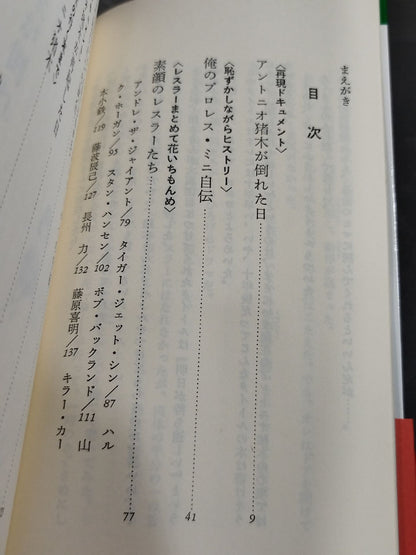 まえがき
目次
〈再現ドキュメント〉
アントニオ猪木が倒れた日 9
〈恥ずかしながらヒストリー〉
俺のプロレス・ミニ自伝 41
〈レスラーまとめて花いちもんめ〉
素顔のレスラーたち 77
アンドレ・ザ・ジャイアント/79 タイガー・ジェット・シン/87 ハル
ク・ホーガン/95 スタン・ハンセン/102 ボブ・バックランド/111 山
本小鉄/119 藤波辰巳/127 長州 力/132 藤原喜明/137 キラー・カー